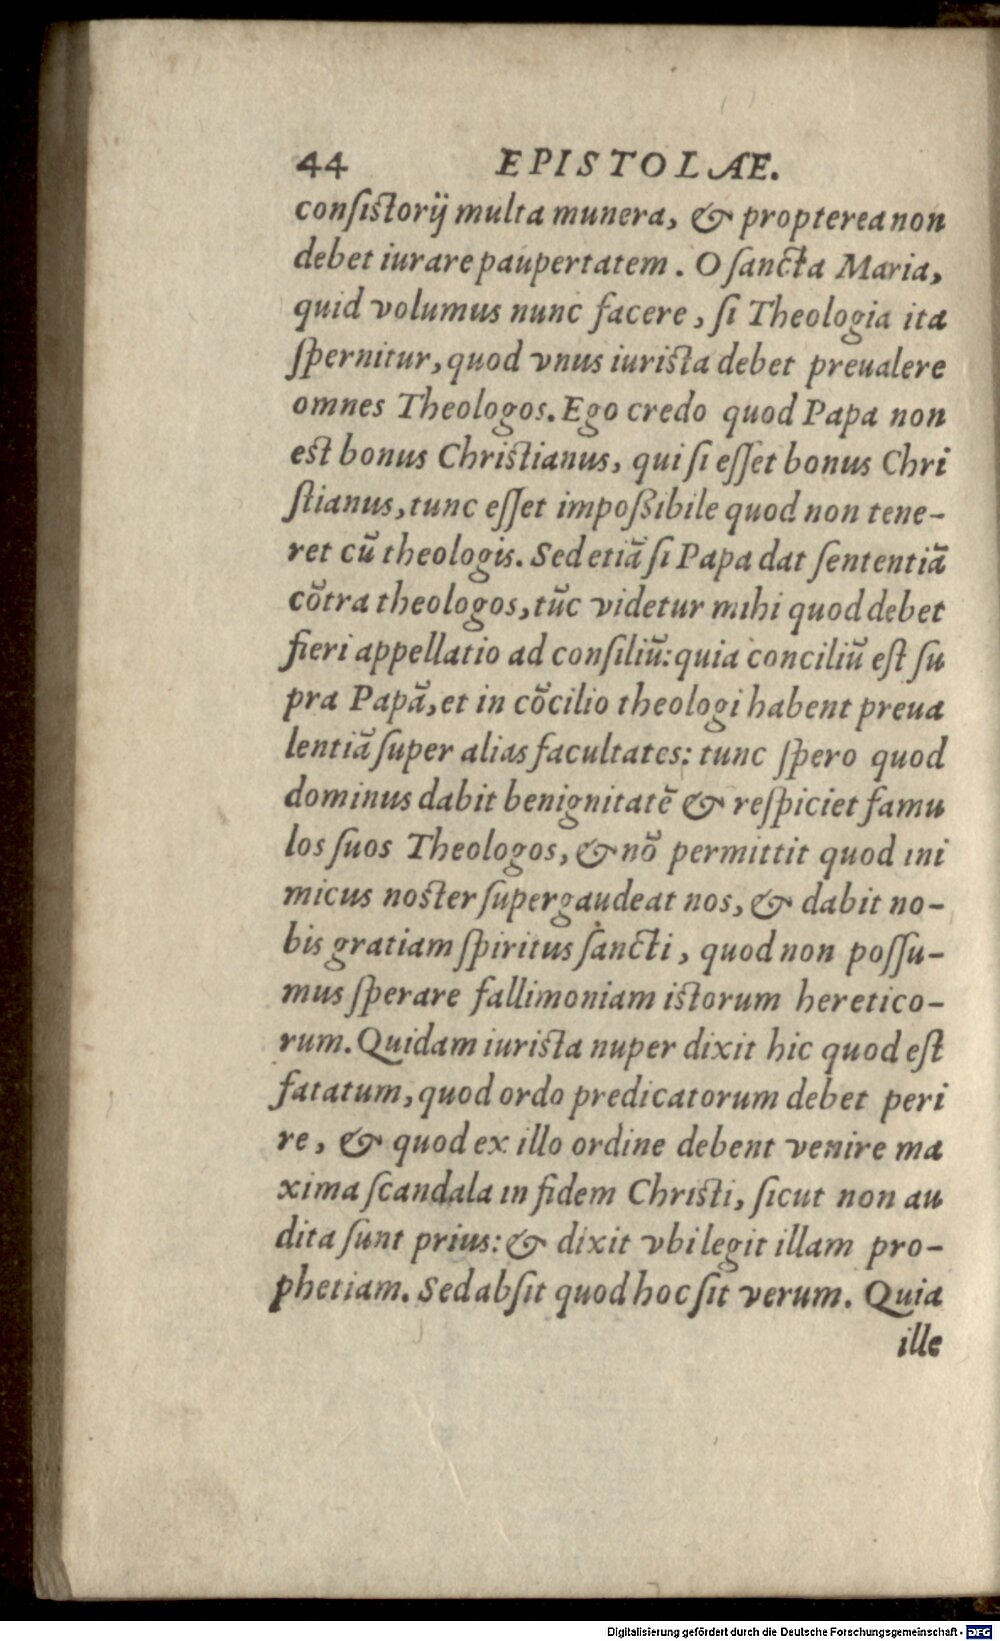 44 EPISTOLÆ.
conſiſtorij multa munera, & propterea non
debet iurare paupertatem. O ſancta Maria,
quid volumus nunc facere, ſi Theologia ita
ſpernitur, quod vnus iuriſta debet preualere
omnes Theologos. Ego credo quod Papa non
eſt bonus Chriſtianus, qui ſi eſſet bonus Chri
ſtianus, tunc eſſet impoßibile quod non tene-
ret cũ theologis. Sed etiã ſi Papa dat ſententiã
cõtra theologos, tũc videtur mihi quod debet
fieri appellatio ad conſiliũ: quia conciliũ eſt ſu
pra Papã, et in cõcilio theologi habent preua
lentiã ſuper alias facultates: tunc ſpero quod
dominus dabit benignitatẽ & reſpiciet famu
los ſuos Theologos, & nõ permittit quod ini
micus noſter ſupergaudeat nos, & dabit no-
bis gratiam ſpiritus ſancti, quod non poſſu-
mus ſperare fallimoniam iſtorum heretico-
rum. Quidam iuriſta nuper dixit hic quod eſt
fatatum, quod ordo predicatorum debet peri
re, & quod ex illo ordine debent venire ma
xima ſcandala in fidem Chriſti, ſicut non au
dita ſunt prius: & dixit vbi legit illam pro-
phetiam. Sed abſit quod hoc ſit verum. Quia
ille
Digitalisierung gefördert durch die Deutsche Forschungsgemeinschaft - DFG